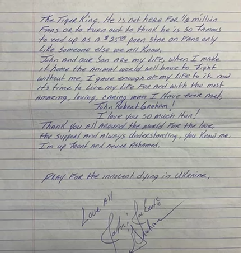 The Tiger King. He is not here for 1/2 million
Fans or to turn out to think he is so famous
to end up as a $5.00 porn star on Fans only
like someone else we all know.
John and our son are my life, when I make
it home the animal world will have to fight
without me, I gave enough of my life to it and
it's time to love my life for and with the most
amazing, loving, caring man I have ever met.
John Robert Graham!
I love you so much Hun!
Thank you all around the world for the love
the support and always understanding. You know me.
I'm up front and never ashamed.
Pray for the innocent dying in Ukraine,
Love All